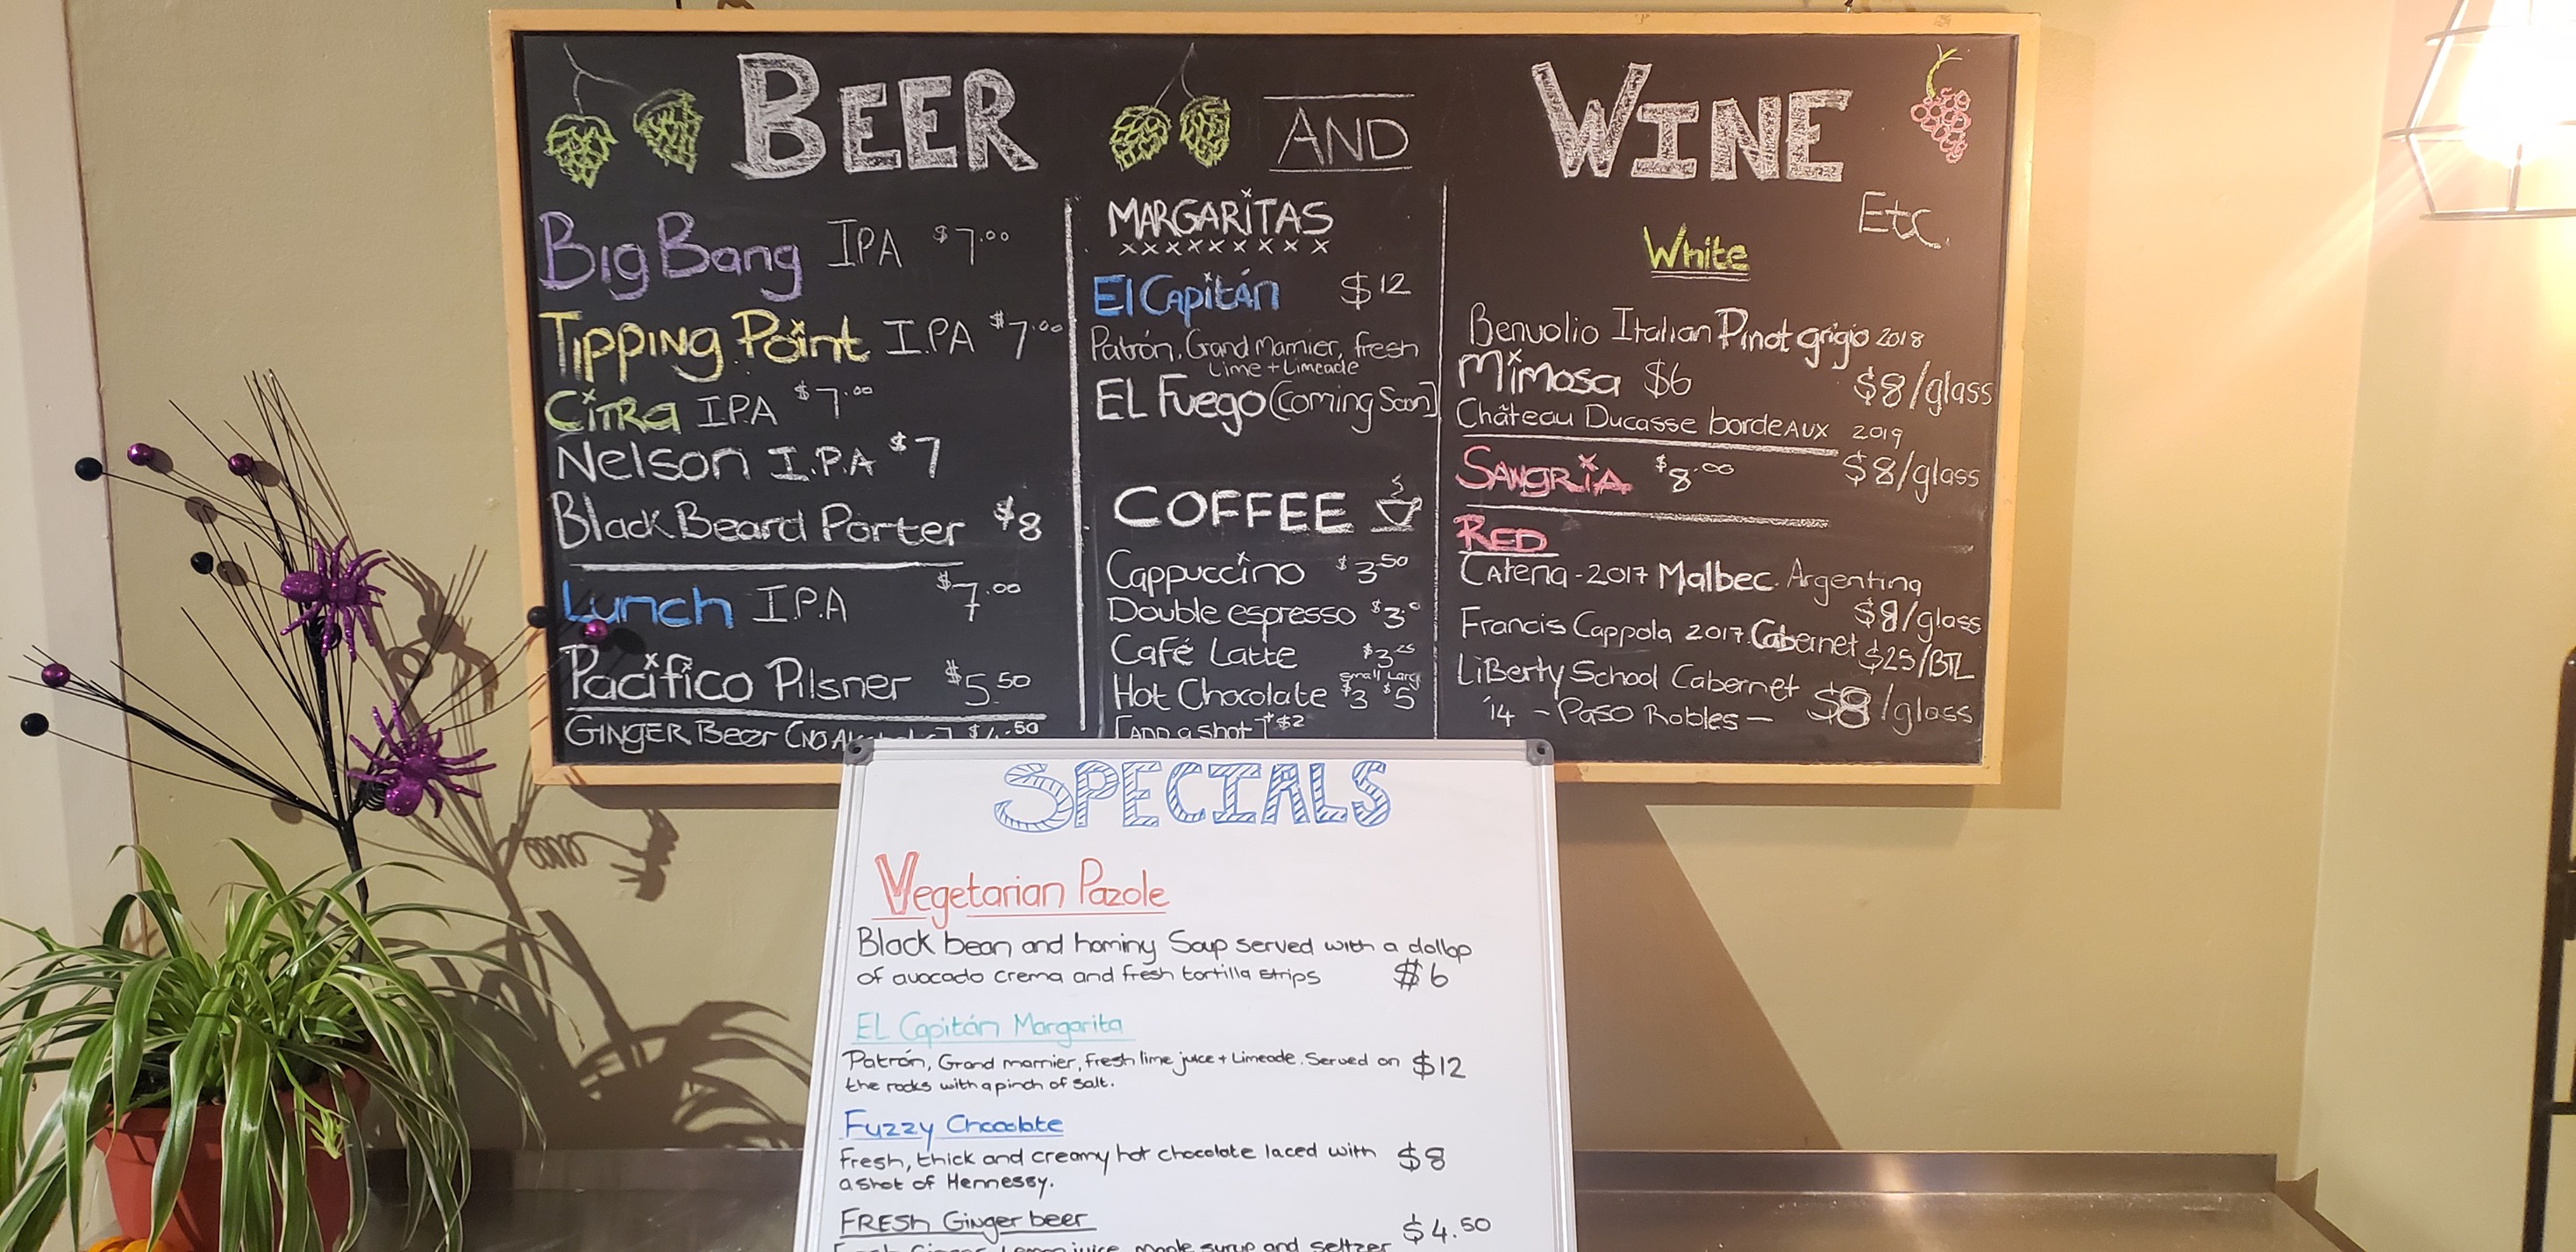 BEER AND WINE
Etc.
Big Bang I.P.A $7.00
Tipping Point I.P.A $7.00
Citra I.P.A $7.00
Nelson I.P.A $7
Black Beard Porter $8
Lunch I.P.A $7.00
Pacifico Pilsner $5.50
GINGER Beer (NO $4.50
MARGARITAS
xxxxxxxxx
El Capitán $12
Patrón, Grand Marnier, fresh
Lime + Limeade
EL Fuego (Coming Soon)
COFFEE
Cappuccino $3.50
Double espresso $3.0
Café Latte $3.25
small Larg
Hot Chocolate $3 $5
[ADD a shot] + $2
White
Benvolio Italian Pinot grigio 2018
Mimosa $6 $8/glass
Château Ducasse bordeAUX 2019
SANGRIA $8.00 $8/glass
RED
Catena - 2017 Malbec. Argentina
$8/glass
Francis Cappola 2017. Cabernet $25/BTL
LiBerty School Cabernet
'14 - PASO Robles - $8/glass
SPECIALS
Vegetarian Pazole
Black bean and hominy Soup served with a dollop
of avocado crema and fresh tortilla strips $6
EL Capitán Margarita
Patrón, Grand marnier, fresh lime juice + Limeade. Served on $12
the rocks with a pinch of salt.
Fuzzy Chocolate
Fresh, thick and creamy hot chocolate laced with $8
a shot of Hennessy.
FRESH Ginger beer $4.50
Fresh Ginger, Lemon juice, maple syrup and seltzer